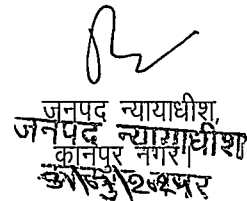 जनपद न्यायाधीश,
जनपद न्यायाधीश
कानपुर नगर।